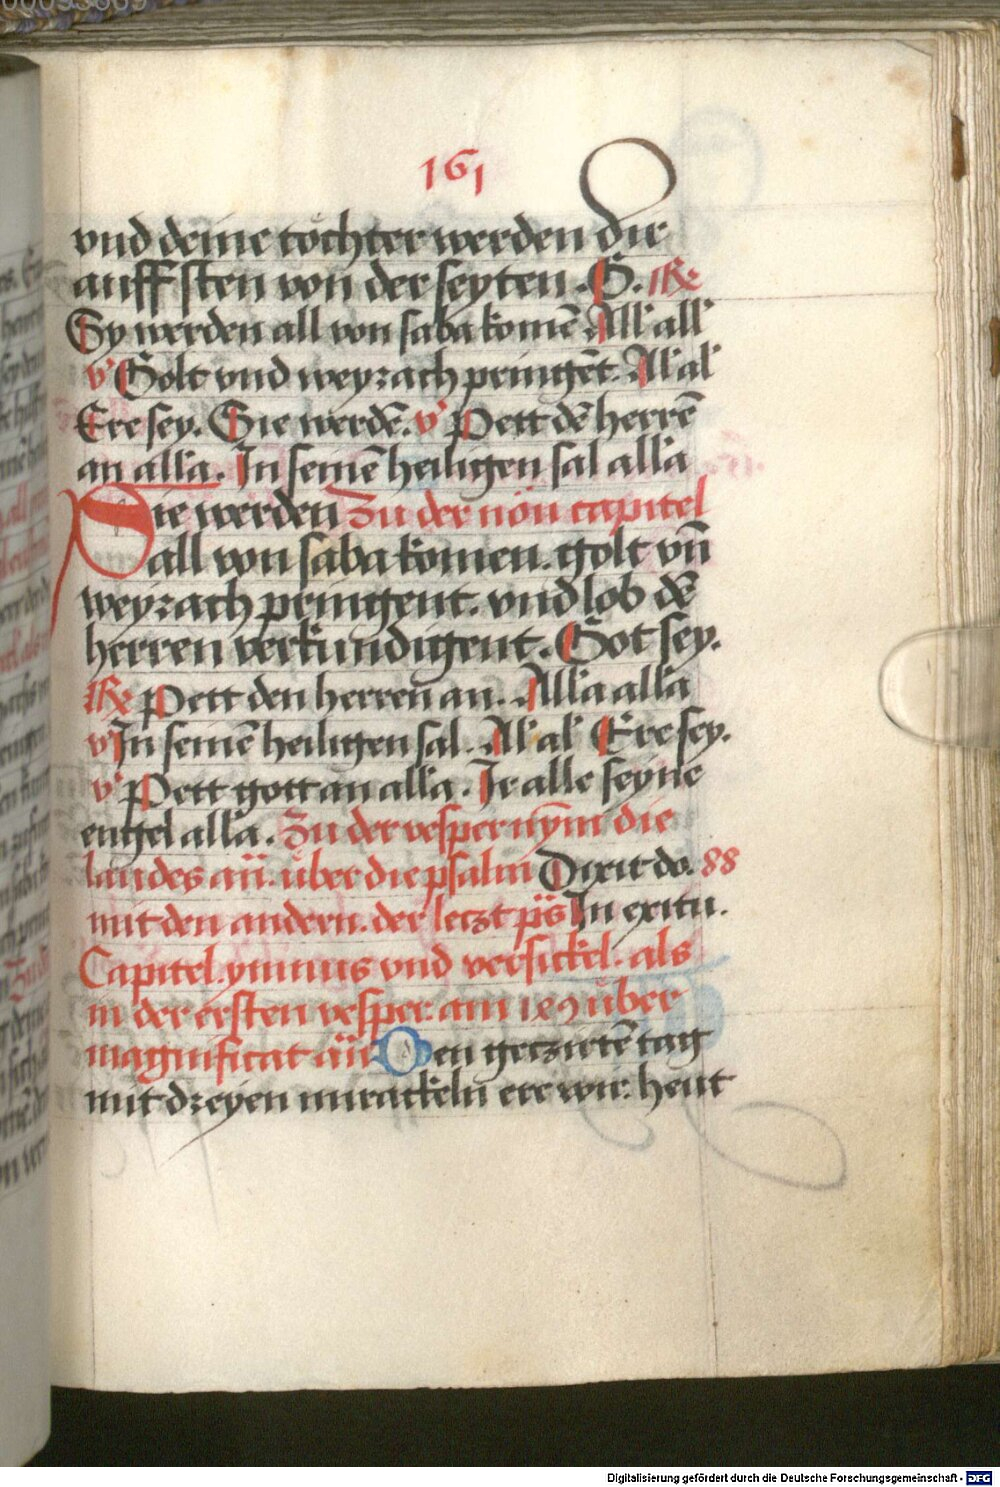 161
vnd deine töchter werden dir
auff sten von der seyten. G. ℟
Sy werden all von saba komē All' all'
v' Golt vnd weyrach pringēt. Al' al'
Ere sey. Sie werdē. v' Pett dē herrē
an alla. In seinē heiligen sal alla
Sie werden Zu der non capitel
all von saba komen. golt vn̄
weyrach pringent. vnd lob dē
herren verkundigent. Got sey.
℟ Pett den herren an. Alla alla
v' In seinē heiligen sal. Al' al' Ere sey.
v' Pett gott an alla. Ir alle seyne
engel alla. Zu der vesper nym die
laudes an̄. über die psalm Dixit do. 88
mit den andern. der leczt ps In exitu.
Capitel. ymnus vnd versickel. als
in der ersten vesper. am 189 über
magnificat an̄ Den geczirtē tag
mit dreyen mirackeln ere wir. heut
Digitalisierung gefördert durch die Deutsche Forschungsgemeinschaft - DFG